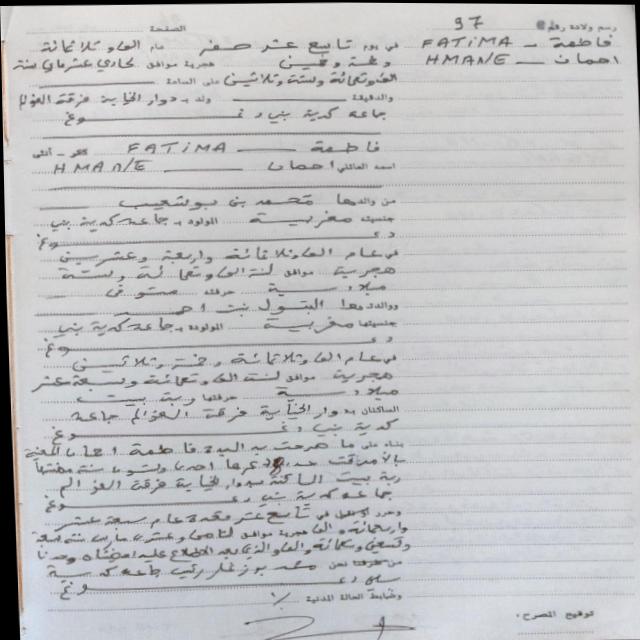 رسم ولادة رقم 97
الصفحة
فاطمة - FATiMA في يوم تاسع عشر صفر عام الف وثلاثمائة
احمان - HMANE وخمسة وخمسين هجرية موافق لحادي عشر ماي سنة
الف وتسعمائة وست وثلاثين على الساعة
والدقيقة ولد بدوار الخباية فرقة العوالم
جماعة كدية بني دغوغ
فاطمة FATiMA ذكر - أنثى
اسمه العائلي احمان HMANE
من والدها محمد بن بوشعيب
جنسيته مغربية المولود بجماعة كدية بني
دغوغ
في عام الف وثلاثمائة واربعة وعشرين
هجرية موافق لسنة الف وتسعمائة وستة
ميلادية حرفته متوفى
ووالدتها البتول بنت احمد
جنسيتها مغربية المولودة بجماعة كدية بني
دغوغ
في عام الف وثلاثمائة وخمسة وثلاثين
هجرية موافق لسنة الف وتسعمائة وسبعة عشر
ميلادية حرفتها ربة بيت
الساكنان بدوار الخباية فرقة العوالم جماعة
كدية بني دغوغ
بناء على ما صرحت به السيدة فاطمة احمان المعنية
بالأمر عمرها احدى وستون سنة مهنتها
ربة بيت الساكنة بدوار الخباية فرقة العوالم
جماعة كدية بني دغوغ
وحرر في تاسع عشر قعدة عام سبعة عشر
واربعمائة والف هجرية موافق لثامن وعشرين مارس سنة سبعة
وتسعين وتسعمائة والف والذي بعد اطلاع عليه امضيناه وحدنا
من طرفنا نحن محمد رئيس جماعة كدية
بني دغوغ
وضابط الحالة المدنية
توقيع المصرح: